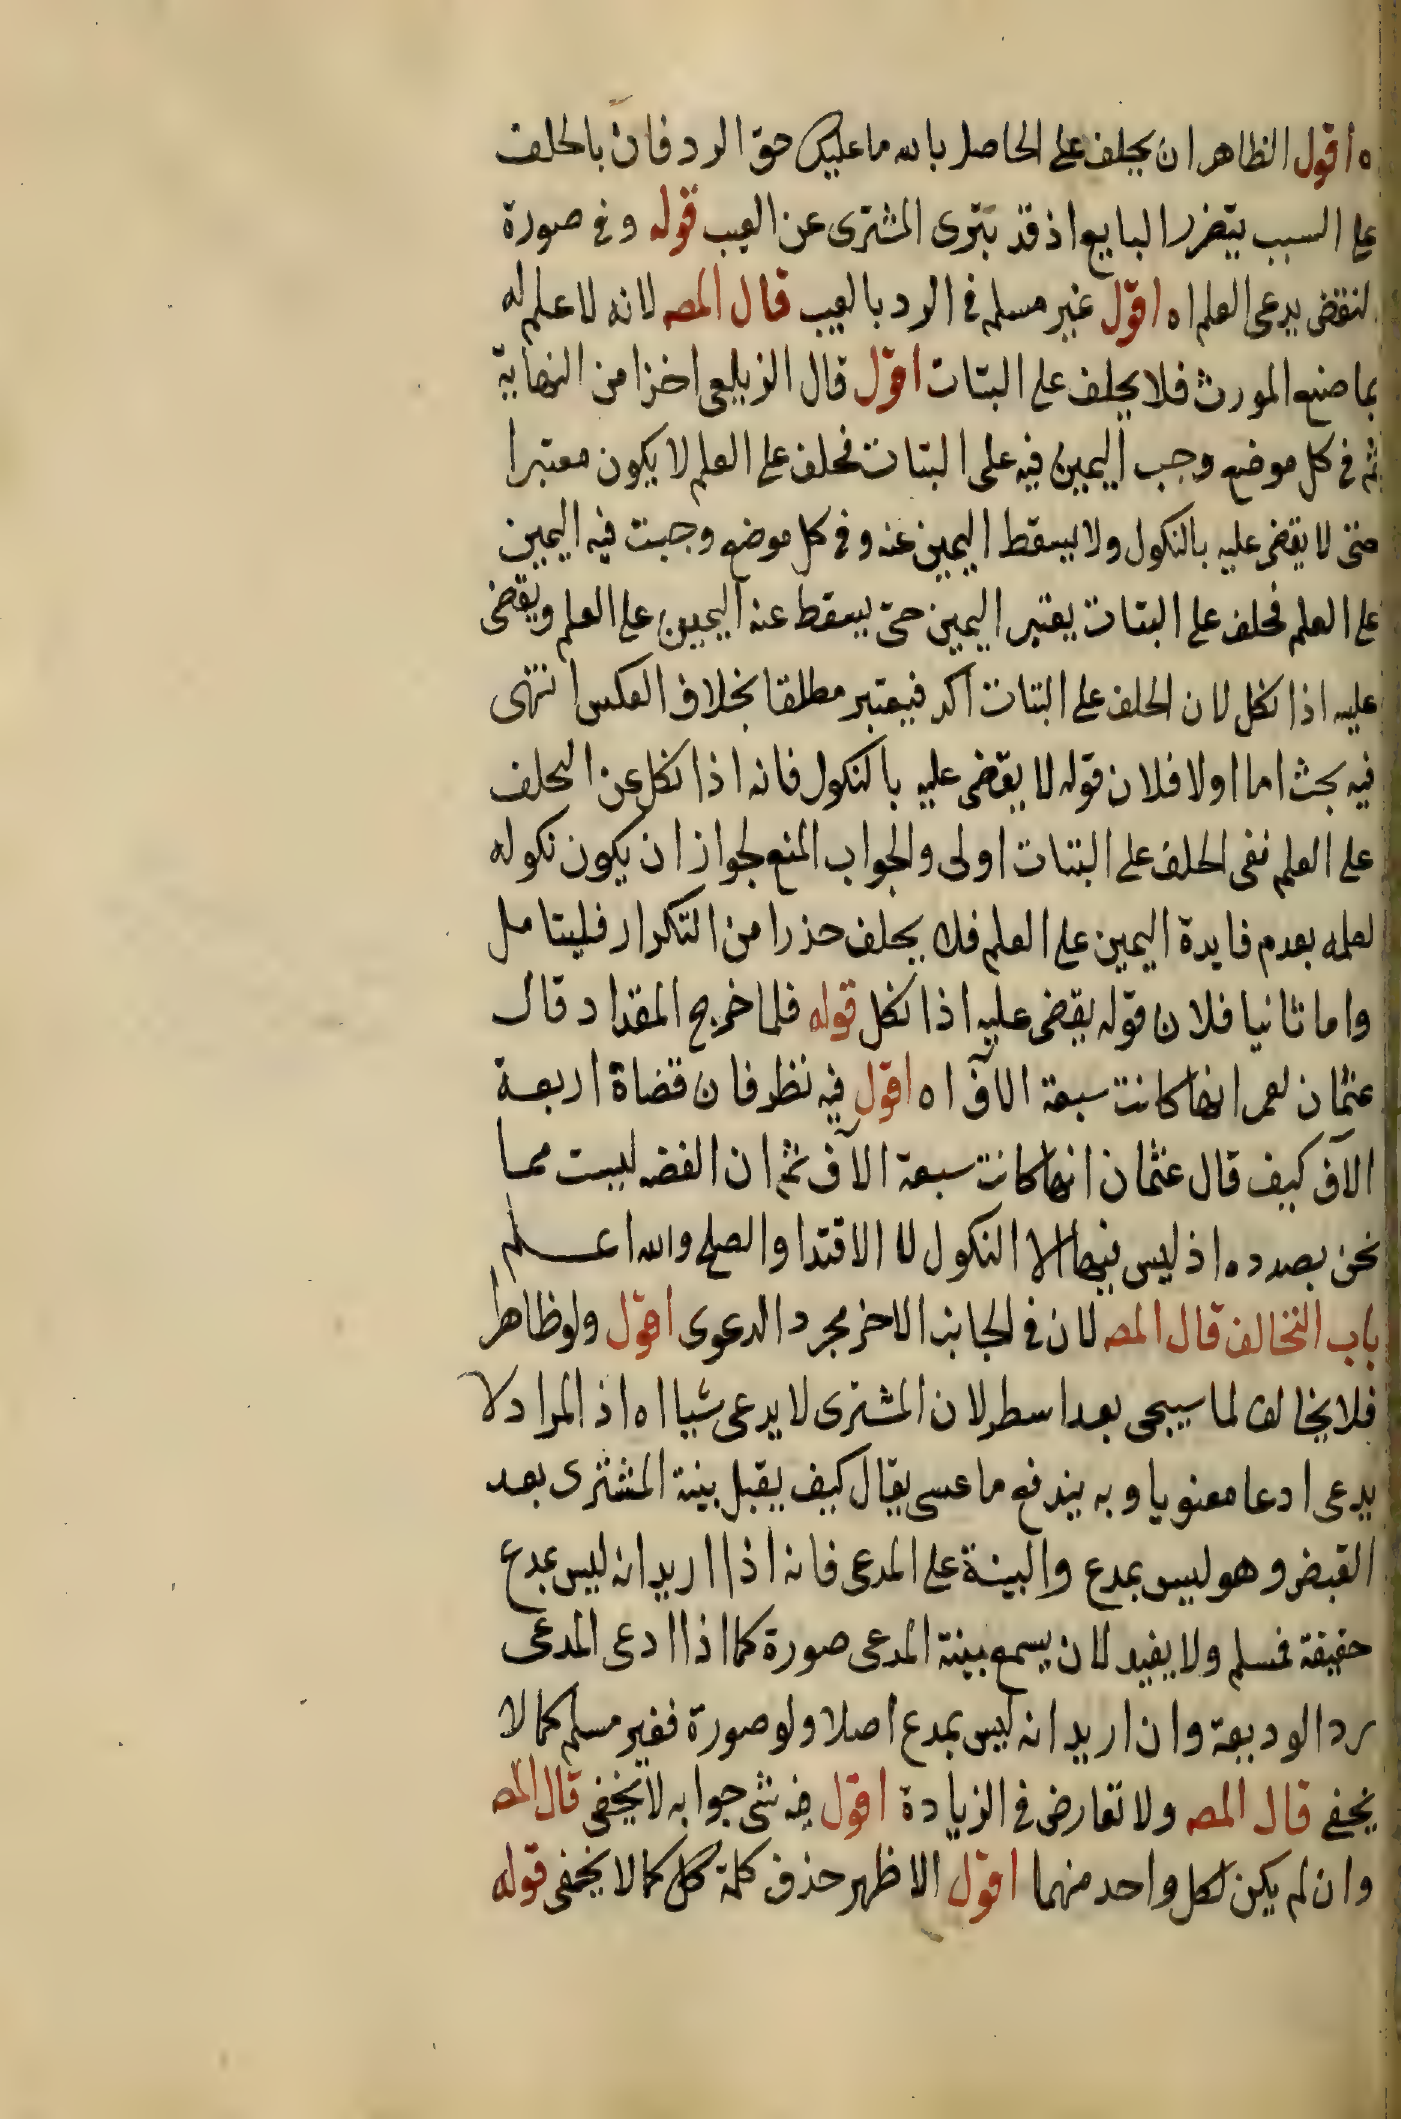 ه أقول الظاهر ان يحلف على الحاصل بالله ما عليك حق الرد فان بالحلف
على السبب يتضرر البايع اذ قد يتبرى المشترى عن العيب قوله وفي صورة
النقض يدعى العلم اه اقول غير مسلم في الرد بالعيب قال المص لانه لا علم له
بما صنع المورث فلا يحلف على البتات اقول قال الزيلعي اخذا من النهاية
ثم في كل موضع وجب اليمين فيه على البتات فحلف على العلم لا يكون معتبرا
حتى لا يقضى عليه بالنكول ولا يسقط اليمين عنه وفي كل موضع وجبت فيه اليمين
على العلم فحلف على البتات يعتبر اليمين حتى يسقط عنه اليمين على العلم ويقضى
عليه اذا نكل لان الحلف على البتات آكد فيعتبر مطلقا بخلاف العكس انتهى
فيه بحث اما اولا فلان قوله لا يقضى عليه بالنكول فانه اذا نكل عن الحلف
على العلم ففى الحلف على البتات اولى والجواب المنع لجواز ان يكون نكوله
لعلمه بعدم فايدة اليمين على العلم فلا يحلف حذرا من التكرار فليتامل
واما ثانيا فلان قوله يقضى عليه اذا نكل قوله فلما خرج المقداد قال
عثمان لعمر انها كانت سبعة الآف اه اقول فيه نظر فان قضاة اربعة
الآف كيف قال عثمان انها كانت سبعة الآف ثم ان القصه ليست مما
نحن بصدده اذ ليس فيها الا النكول لا الاقتدا والصلح والله اعلم
باب التحالف قال المص لان في الجانب الاخر مجرد الدعوى اقول ولو ظاهرا
فلا يخالف لما سيجى بعد اسطر لان المشترى لا يدعى شيا اه اذ المراد لا
يدعى ادعا معنويا وبه يندفع ما عسى يقال كيف يقبل بينة المشترى بعد
القبض وهو ليس بمدع والبينة على المدعى فانه اذا اريد انه ليس بمدع
حقيقة فمسلم ولا يفيد لان يسمع بينة المدعى صورة كما اذا ادعى المدعى
رد الوديعة وان اريد انه ليس بمدع اصلا ولو صورة فغير مسلم كما لا
يخفى قال المص ولا تعارض في الزيادة اقول فيه شى جوابه لا يخفى قال المص
وان لم يكن لكل واحد منهما اقول الاظهر حذف كلمة كل كما لا يخفى قوله